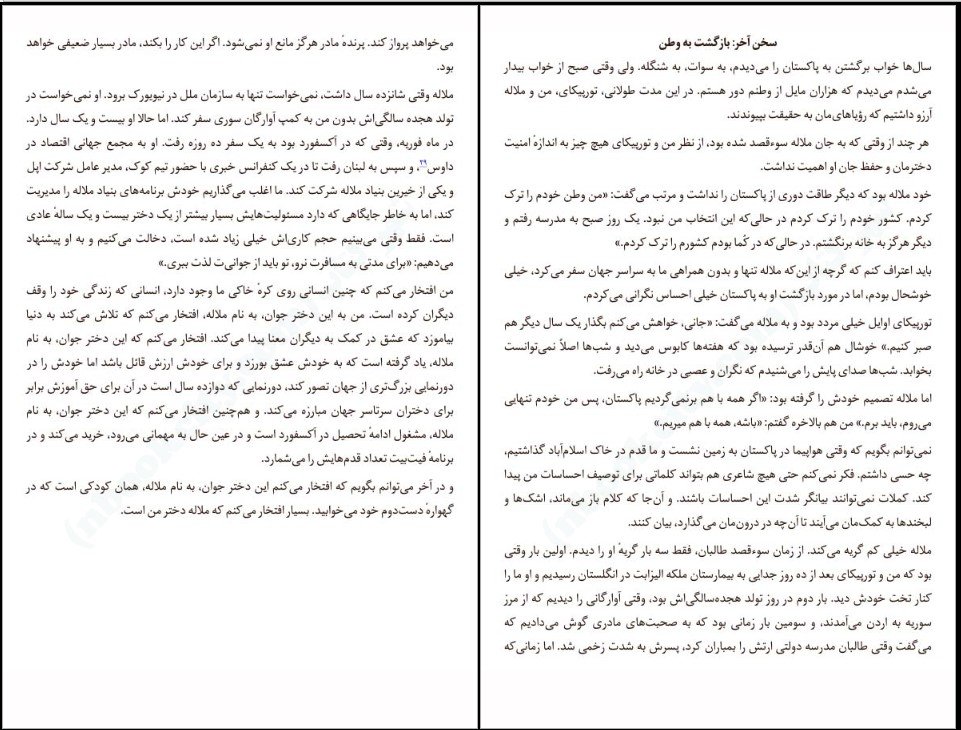 سخن آخر: بازگشت به وطن
سال‌ها خواب برگشتن به پاکستان را می‌دیدم، به سوات، به شنگله. ولی وقتی صبح از خواب بیدار
می‌شدم می‌دیدم که هزاران مایل از وطنم دور هستم. در این مدت طولانی، تورپیکای، من و ملاله
آرزو داشتیم که رؤیاهای‌مان به حقیقت بپیوندند.
هر چند از وقتی که به جان ملاله سوءقصد شده بود، از نظر من و تورپیکای هیچ چیز به اندازهٔ امنیت
دخترمان و حفظ جان او اهمیت نداشت.
خود ملاله بود که دیگر طاقت دوری از پاکستان را نداشت و مرتب می‌گفت: «من وطن خودم را ترک
کردم. کشور خودم را ترک کردم در حالی‌که این انتخاب من نبود. یک روز صبح به مدرسه رفتم و
دیگر هرگز به خانه برنگشتم. در حالی‌که در کُما بودم کشورم را ترک کردم.»
باید اعتراف کنم که گرچه از این‌که ملاله تنها و بدون همراهی ما به سراسر جهان سفر می‌کرد، خیلی
خوشحال بودم، اما در مورد بازگشت او به پاکستان خیلی احساس نگرانی می‌کردم.
تورپیکای اوایل خیلی مردد بود و به ملاله می‌گفت: «جانی، خواهش می‌کنم بگذار یک سال دیگر هم
صبر کنیم.» خوشال هم آن‌قدر ترسیده بود که هفته‌ها کابوس می‌دید و شب‌ها اصلاً نمی‌توانست
بخوابد. شب‌ها صدای پایش را می‌شنیدم که نگران و عصبی در خانه راه می‌رفت.
اما ملاله تصمیم خودش را گرفته بود: «اگر همه با هم برنمی‌گردیم پاکستان، پس من خودم تنهایی
می‌روم، باید برم.» من هم بالاخره گفتم: «باشه، همه با هم میریم.»
نمی‌توانم بگویم که وقتی هواپیما در پاکستان به زمین نشست و ما قدم در خاک اسلام‌آباد گذاشتیم،
چه حسی داشتم. فکر نمی‌کنم حتی هیچ شاعری هم بتواند کلماتی برای توصیف احساسات من پیدا
کند. کملات نمی‌توانند بیانگر شدت این احساسات باشند. و آن‌جا که کلام باز می‌ماند، اشک‌ها و
لبخندها به کمک‌مان می‌آیند تا آن‌چه در درون‌مان می‌گذارد، بیان کنند.
ملاله خیلی کم گریه می‌کند. از زمان سوءقصد طالبان، فقط سه بار گریهٔ او را دیدم. اولین بار وقتی
بود که من و تورپیکای بعد از ده روز جدایی به بیمارستان ملکه الیزابت در انگلستان رسیدیم و او ما را
کنار تخت خودش دید. بار دوم در روز تولد هجده‌سالگی‌اش بود، وقتی آوارگانی را دیدیم که از مرز
سوریه به اردن می‌آمدند، و سومین بار زمانی بود که به صحبت‌های مادری گوش می‌دادیم که
می‌گفت وقتی طالبان مدرسه دولتی ارتش را بمباران کرد، پسرش به شدت زخمی شد. اما زمانی‌که
می‌خواهد پرواز کند. پرندهٔ مادر هرگز مانع او نمی‌شود. اگر این کار را بکند، مادر بسیار ضعیفی خواهد
بود.
ملاله وقتی شانزده سال داشت، نمی‌خواست تنها به سازمان ملل در نیویورک برود. او نمی‌خواست در
تولد هجده سالگی‌اش بدون من به کمپ آوارگان سوری سفر کند. اما حالا او بیست و یک سال دارد.
در ماه فوریه، وقتی که در آکسفورد بود به یک سفر ده روزه رفت. او به مجمع جهانی اقتصاد در
داوس۲۹، و سپس به لبنان رفت تا در یک کنفرانس خبری با حضور تیم کوک، مدیر عامل شرکت اپل
و یکی از خیرین بنیاد ملاله شرکت کند. ما اغلب می‌گذاریم خودش برنامه‌های بنیاد ملاله را مدیریت
کند، اما به خاطر جایگاهی که دارد مسئولیت‌هایش بسیار بیشتر از یک دختر بیست و یک سالهٔ عادی
است. فقط وقتی می‌بینیم حجم کاری‌اش خیلی زیاد شده است، دخالت می‌کنیم و به او پیشنهاد
می‌دهیم: «برای مدتی به مسافرت نرو، تو باید از جوانی‌ت لذت ببری.»
من افتخار می‌کنم که چنین انسانی روی کرهٔ خاکی ما وجود دارد، انسانی که زندگی خود را وقف
دیگران کرده است. من به این دختر جوان، به نام ملاله، افتخار می‌کنم که تلاش می‌کند به دنیا
بیاموزد که عشق در کمک به دیگران معنا پیدا می‌کند. افتخار می‌کنم که این دختر جوان، به نام
ملاله، یاد گرفته است که به خودش عشق بورزد و برای خودش ارزش قائل باشد اما خودش را در
دورنمایی بزرگ‌تری از جهان تصور کند، دورنمایی که دوازده سال است در آن برای حق آموزش برابر
برای دختران سرتاسر جهان مبارزه می‌کند. و هم‌چنین افتخار می‌کنم که این دختر جوان، به نام
ملاله، مشغول ادامهٔ تحصیل در آکسفورد است و در عین حال به مهمانی می‌رود، خرید می‌کند و در
برنامهٔ فیت‌بیت تعداد قدم‌هایش را می‌شمارد.
و در آخر می‌توانم بگویم که افتخار می‌کنم این دختر جوان، به نام ملاله، همان کودکی است که در
گهوارهٔ دست‌دوم خود می‌خوابید. بسیار افتخار می‌کنم که ملاله دختر من است.